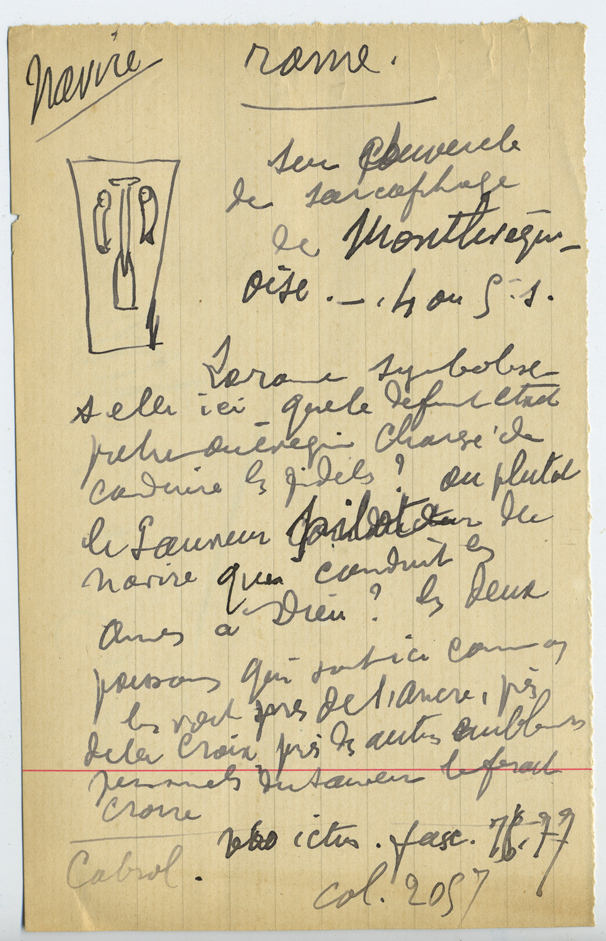 navire
rame.
sur couvercle
de sarcophage
de
oise. — . 4 ou 5. s.
La rame symbolise
t elle ici que le défunt était
chargé de
conduire les fidels ? ou plutot
le Sauveur pilote du
navire qui conduit les
ames à Dieu ? les deux
poissons qui sont ici comme
les voit près de l'ancre, près
de la Croix, près des autres emblemes
personnels du Sauveur le ferait
croire
ictus . fasc. 76-77
Cabrol .
col. 2057